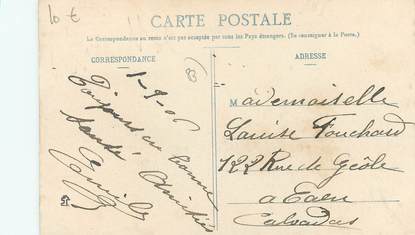 10 €
CARTE POSTALE
La Correspondance au recto n'est pas acceptée par tous les Pays étrangers. (Se renseigner à la Poste.)
CORRESPONDANCE
ADRESSE
(83)
1-9-06
Toujours en bonne
santé Amitiés
Mademoiselle
Louise Fouchard
122 Rue de Geôle
a Caen
Calvados